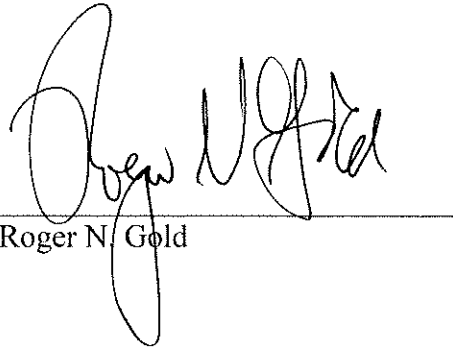 Roger N Gold
Roger N. Gold